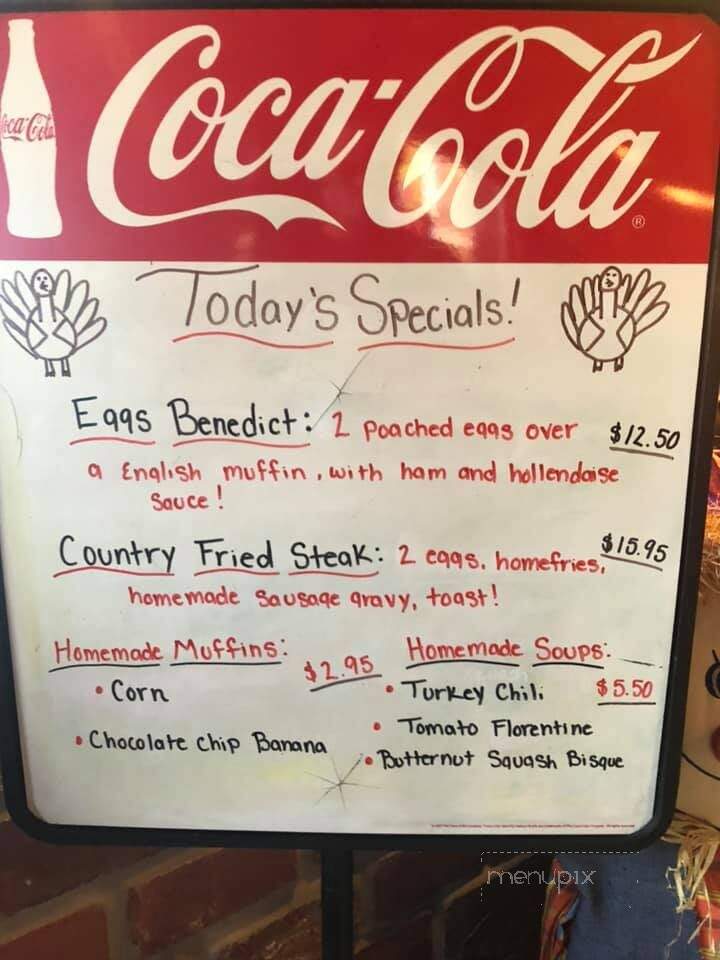 Coca-Cola
Coca-Cola®
Today's Specials!
Eggs Benedict: 2 poached eggs over $12.50
a English muffin, with ham and hollendaise
sauce!
Country Fried Steak: 2 eggs, homefries, $15.95
homemade sausage gravy, toast!
Homemade Muffins: $2.95
• Corn
• Chocolate chip Banana
Homemade Soups:
• Turkey Chili $5.50
• Tomato Florentine
• Butternut Squash Bisque
menupix